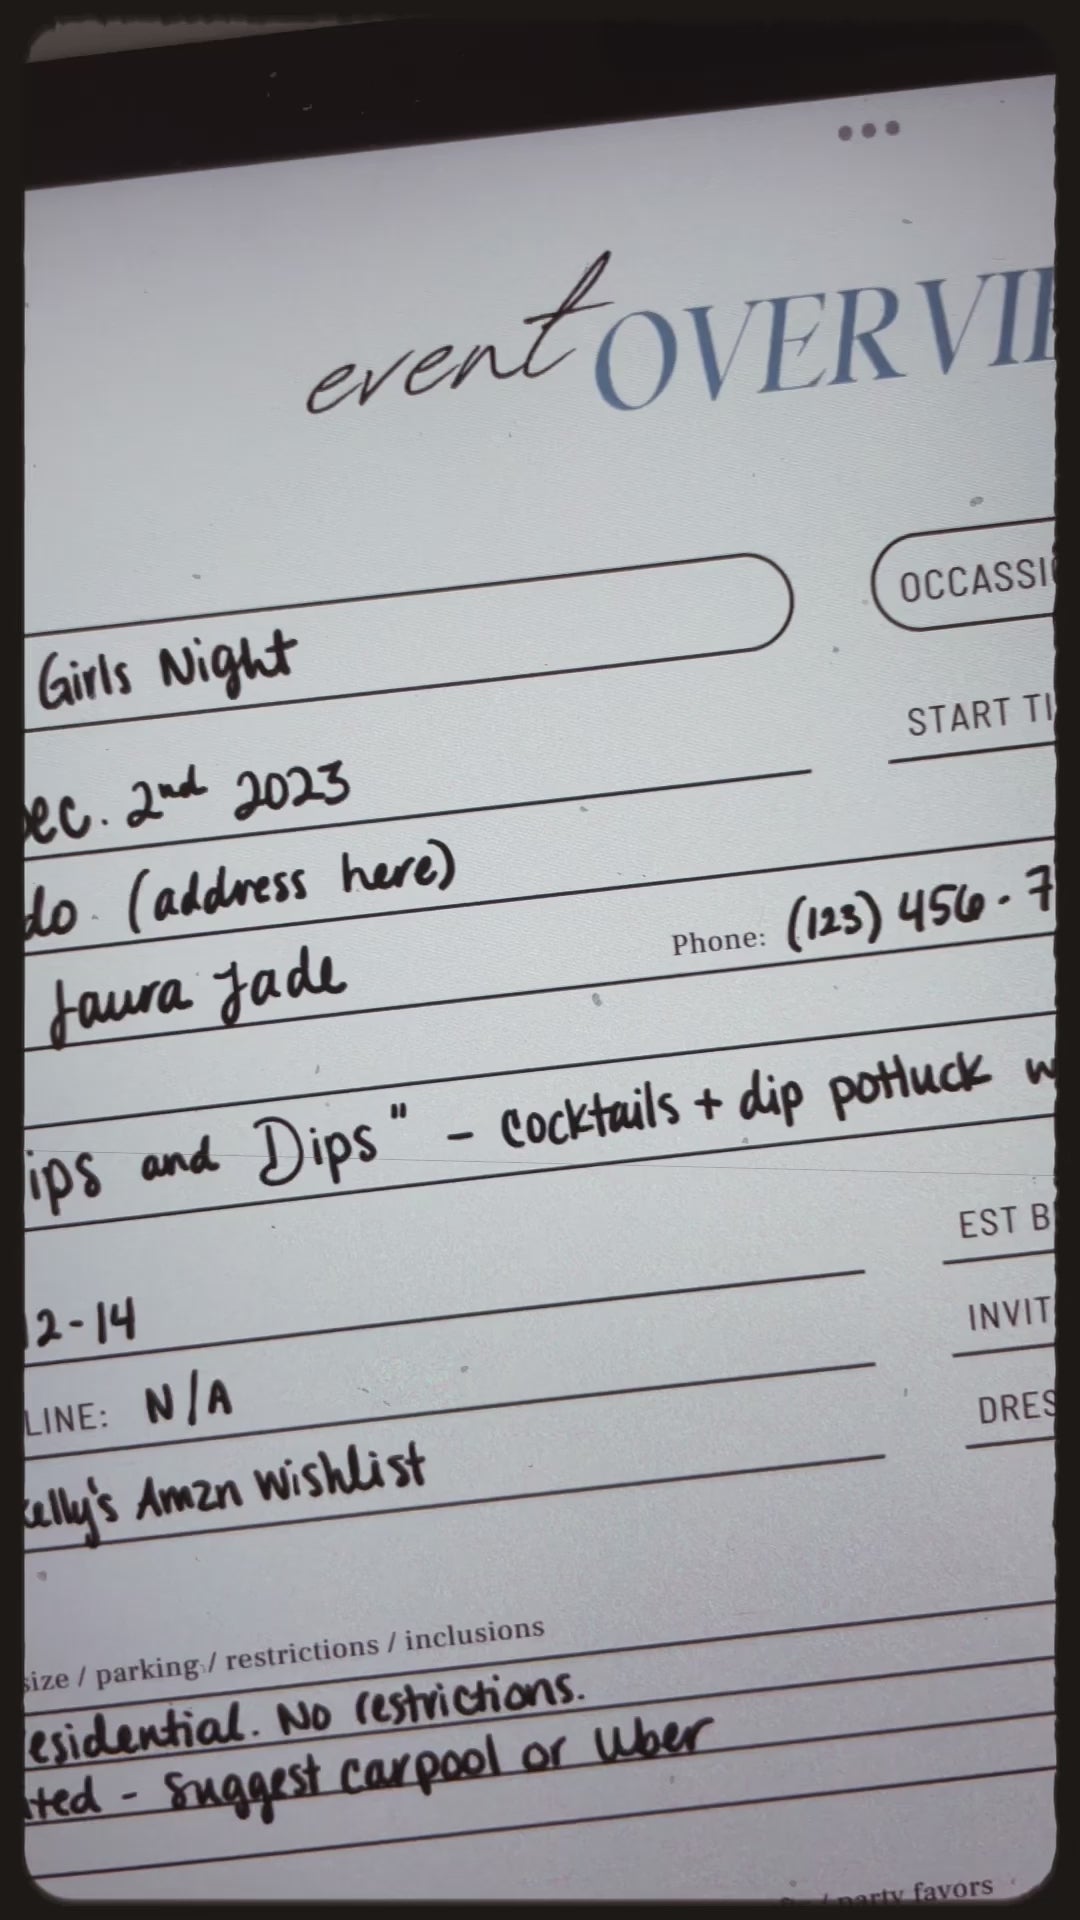 event OVERVIE
OCCASSIO
Girls Night
START TI
ec. 2nd 2023
do (address here)
Laura Jade Phone: (123) 456-7
ips and Dips" - cocktails + dip potluck w
EST B
12-14
INVIT
LINE: N/A
DRES
Kelly's Amzn Wishlist
size / parking / restrictions / inclusions
esidential. No restrictions.
ted - Suggest carpool or Uber
/ party favors